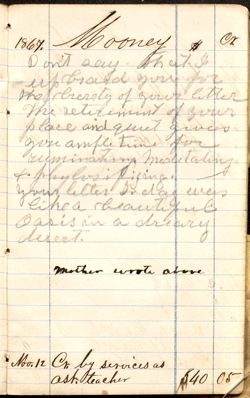 1867. Mooney $ Cr
Don't say that I
upbraid you for
the brevity of your letter
The retirement of your
place and quiet gives
you ample time for
ruminating meditating
& philosifising.
your letter Judge was
like a beautiful
Oasis in a dreary
desert.
Mother wrote above
Nov. 12 Cr by services as
ast. teacher $40 05